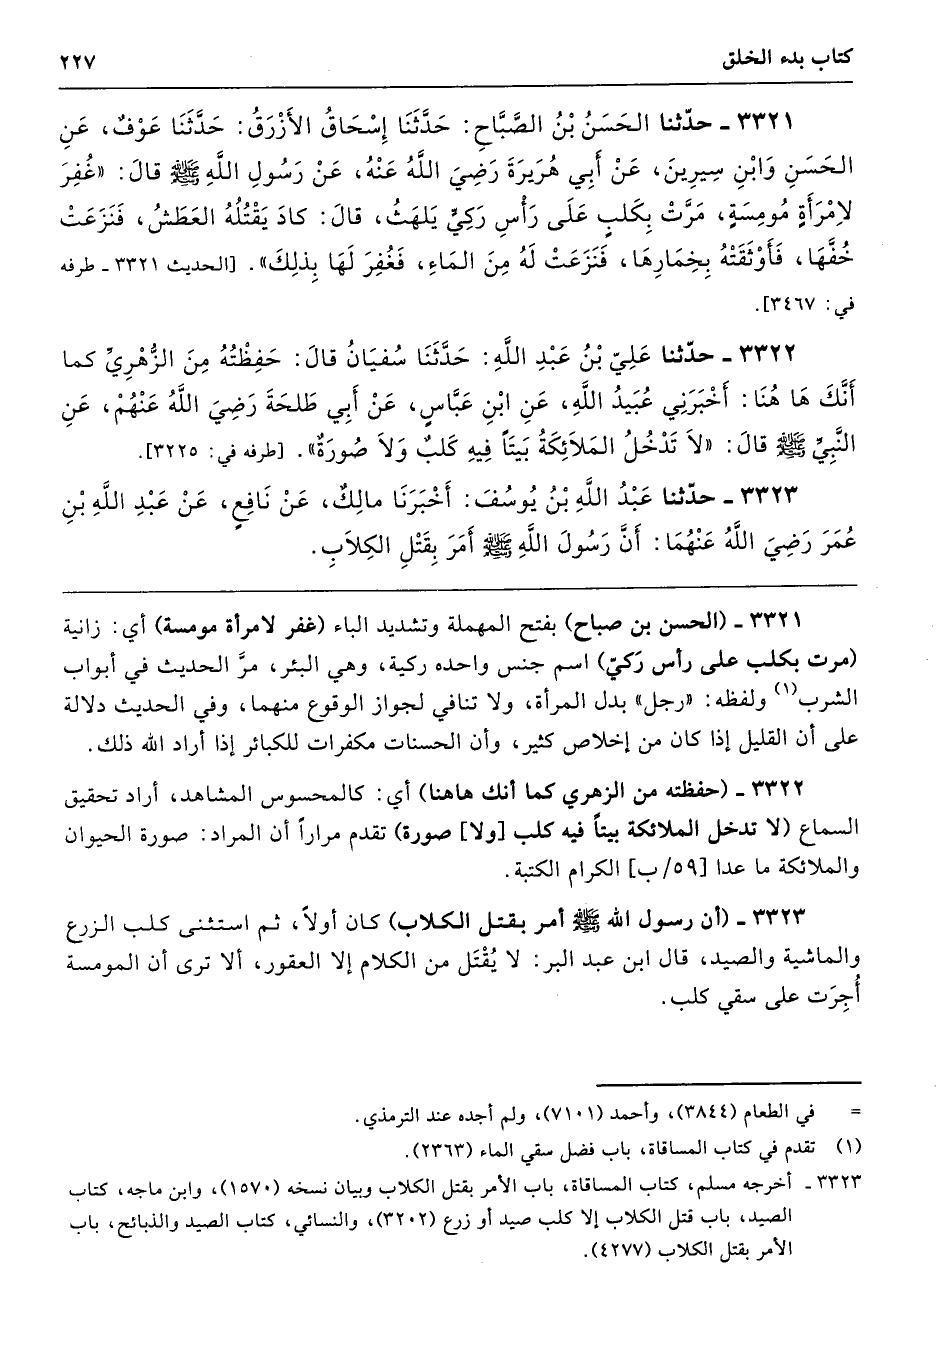 كتاب بدء الخلق ٢٢٧
٣٣٢١ ـ حدّثنا الحَسَنُ بْنُ الصَّبَّاحِ: حَدَّثَنَا إِسْحَاقُ الأَزْرَقُ: حَدَّثَنَا عَوْفٌ، عَنِ
الحَسَنِ وَابْنِ سِيرِينَ، عَنْ أَبِي هُرَيرَةَ رَضِيَ اللَّهُ عَنْهُ، عَنْ رَسُولِ اللَّهِ ﷺ قالَ: «غُفِرَ
لامْرَأَةٍ مُومِسَةٍ، مَرَّتْ بِكَلبٍ عَلَى رَأْسِ رَكِيٍّ يَلهَثُ، قالَ: كادَ يَقْتُلُهُ العَطَشُ، فَنَزَعَتْ
خُفَّهَا، فَأَوْثَقَتْهُ بِخِمَارِهَا، فَنَزَعَتْ لَهُ مِنَ المَاءِ، فَغُفِرَ لَهَا بِذلِكَ». [الحديث ٣٣٢١ ـ طرفه
في: ٣٤٦٧].
٣٣٢٢ ـ حدّثنا عَلِيّ بْنُ عَبْدِ اللَّهِ: حَدَّثَنَا سُفيَانُ قالَ: حَفِظْتُهُ مِنَ الزُّهْرِيِّ كما
أَنَّكَ هَا هُنَا: أَخْبَرَنِي عُبَيدُ اللَّهِ، عَنِ ابْنِ عَبَّاسٍ، عَنْ أَبِي طَلحَةَ رَضِيَ اللَّهُ عَنْهُمْ، عَنِ
النَّبِيِّ ﷺ قالَ: «لاَ تَدْخُلُ المَلاَئِكَةُ بَيتَاً فِيهِ كَلبٌ وَلاَ صُورَةٌ». [طرفه في: ٣٢٢٥].
٣٣٢٣ ـ حدّثنا عَبْدُ اللَّهِ بْنُ يُوسُفَ: أَخْبَرَنَا مالِكٌ، عَنْ نَافِعٍ، عَنْ عَبْدِ اللَّهِ بْنِ
عُمَرَ رَضِيَ اللَّهُ عَنْهُمَا: أَنَّ رَسُولَ اللَّهِ ﷺ أَمَرَ بِقَتْلِ الكِلاَبِ.
٣٣٢١ ـ (الحسن بن صباح) بفتح المهملة وتشديد الباء (غفر لامرأة مومسة) أي: زانية
(مرت بكلب على رأس رَكيّ) اسم جنس واحده ركية، وهي البئر، مرَّ الحديث في أبواب
الشرب(١) ولفظه: «رجل» بدل المرأة، ولا تنافي لجواز الوقوع منهما، وفي الحديث دلالة
على أن القليل إذا كان من إخلاص كثير، وأن الحسنات مكفرات للكبائر إذا أراد الله ذلك.
٣٣٢٢ ـ (حفظته من الزهري كما أنك هاهنا) أي: كالمحسوس المشاهد، أراد تحقيق
السماع (لا تدخل الملائكة بيتاً فيه كلب [ولا] صورة) تقدم مراراً أن المراد: صورة الحيوان
والملائكة ما عدا [٥٩/ب] الكرام الكتبة.
٣٣٢٣ ـ (أن رسول الله ﷺ أمر بقتل الكلاب) كان أولاً، ثم استثنى كلب الزرع
والماشية والصيد، قال ابن عبد البر: لا يُقْتَل من الكلام إلا العقور، ألا ترى أن المومسة
أُجِرَت على سقي كلب.
= في الطعام (٣٨٤٤)، وأحمد (٧١٠١)، ولم أجده عند الترمذي.
(١) تقدم في كتاب المساقاة، باب فضل سقي الماء (٢٣٦٣).
٣٣٢٣ ـ أخرجه مسلم، كتاب المساقاة، باب الأمر بقتل الكلاب وبيان نسخه (١٥٧٠)، وابن ماجه، كتاب
الصيد، باب قتل الكلاب إلا كلب صيد أو زرع (٣٢٠٢)، والنسائي، كتاب الصيد والذبائح، باب
الأمر بقتل الكلاب (٤٢٧٧).